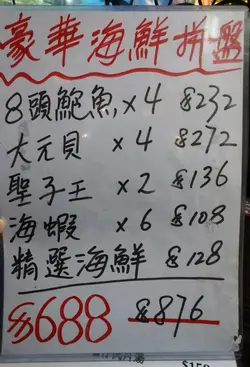 豪華海鮮拼盤
8頭鮑魚 x 4 $232
大元貝 x 4 $272
聖子王 x 2 $136
海蝦 x 6 $108
精選海鮮 $128
$688 $876
$158